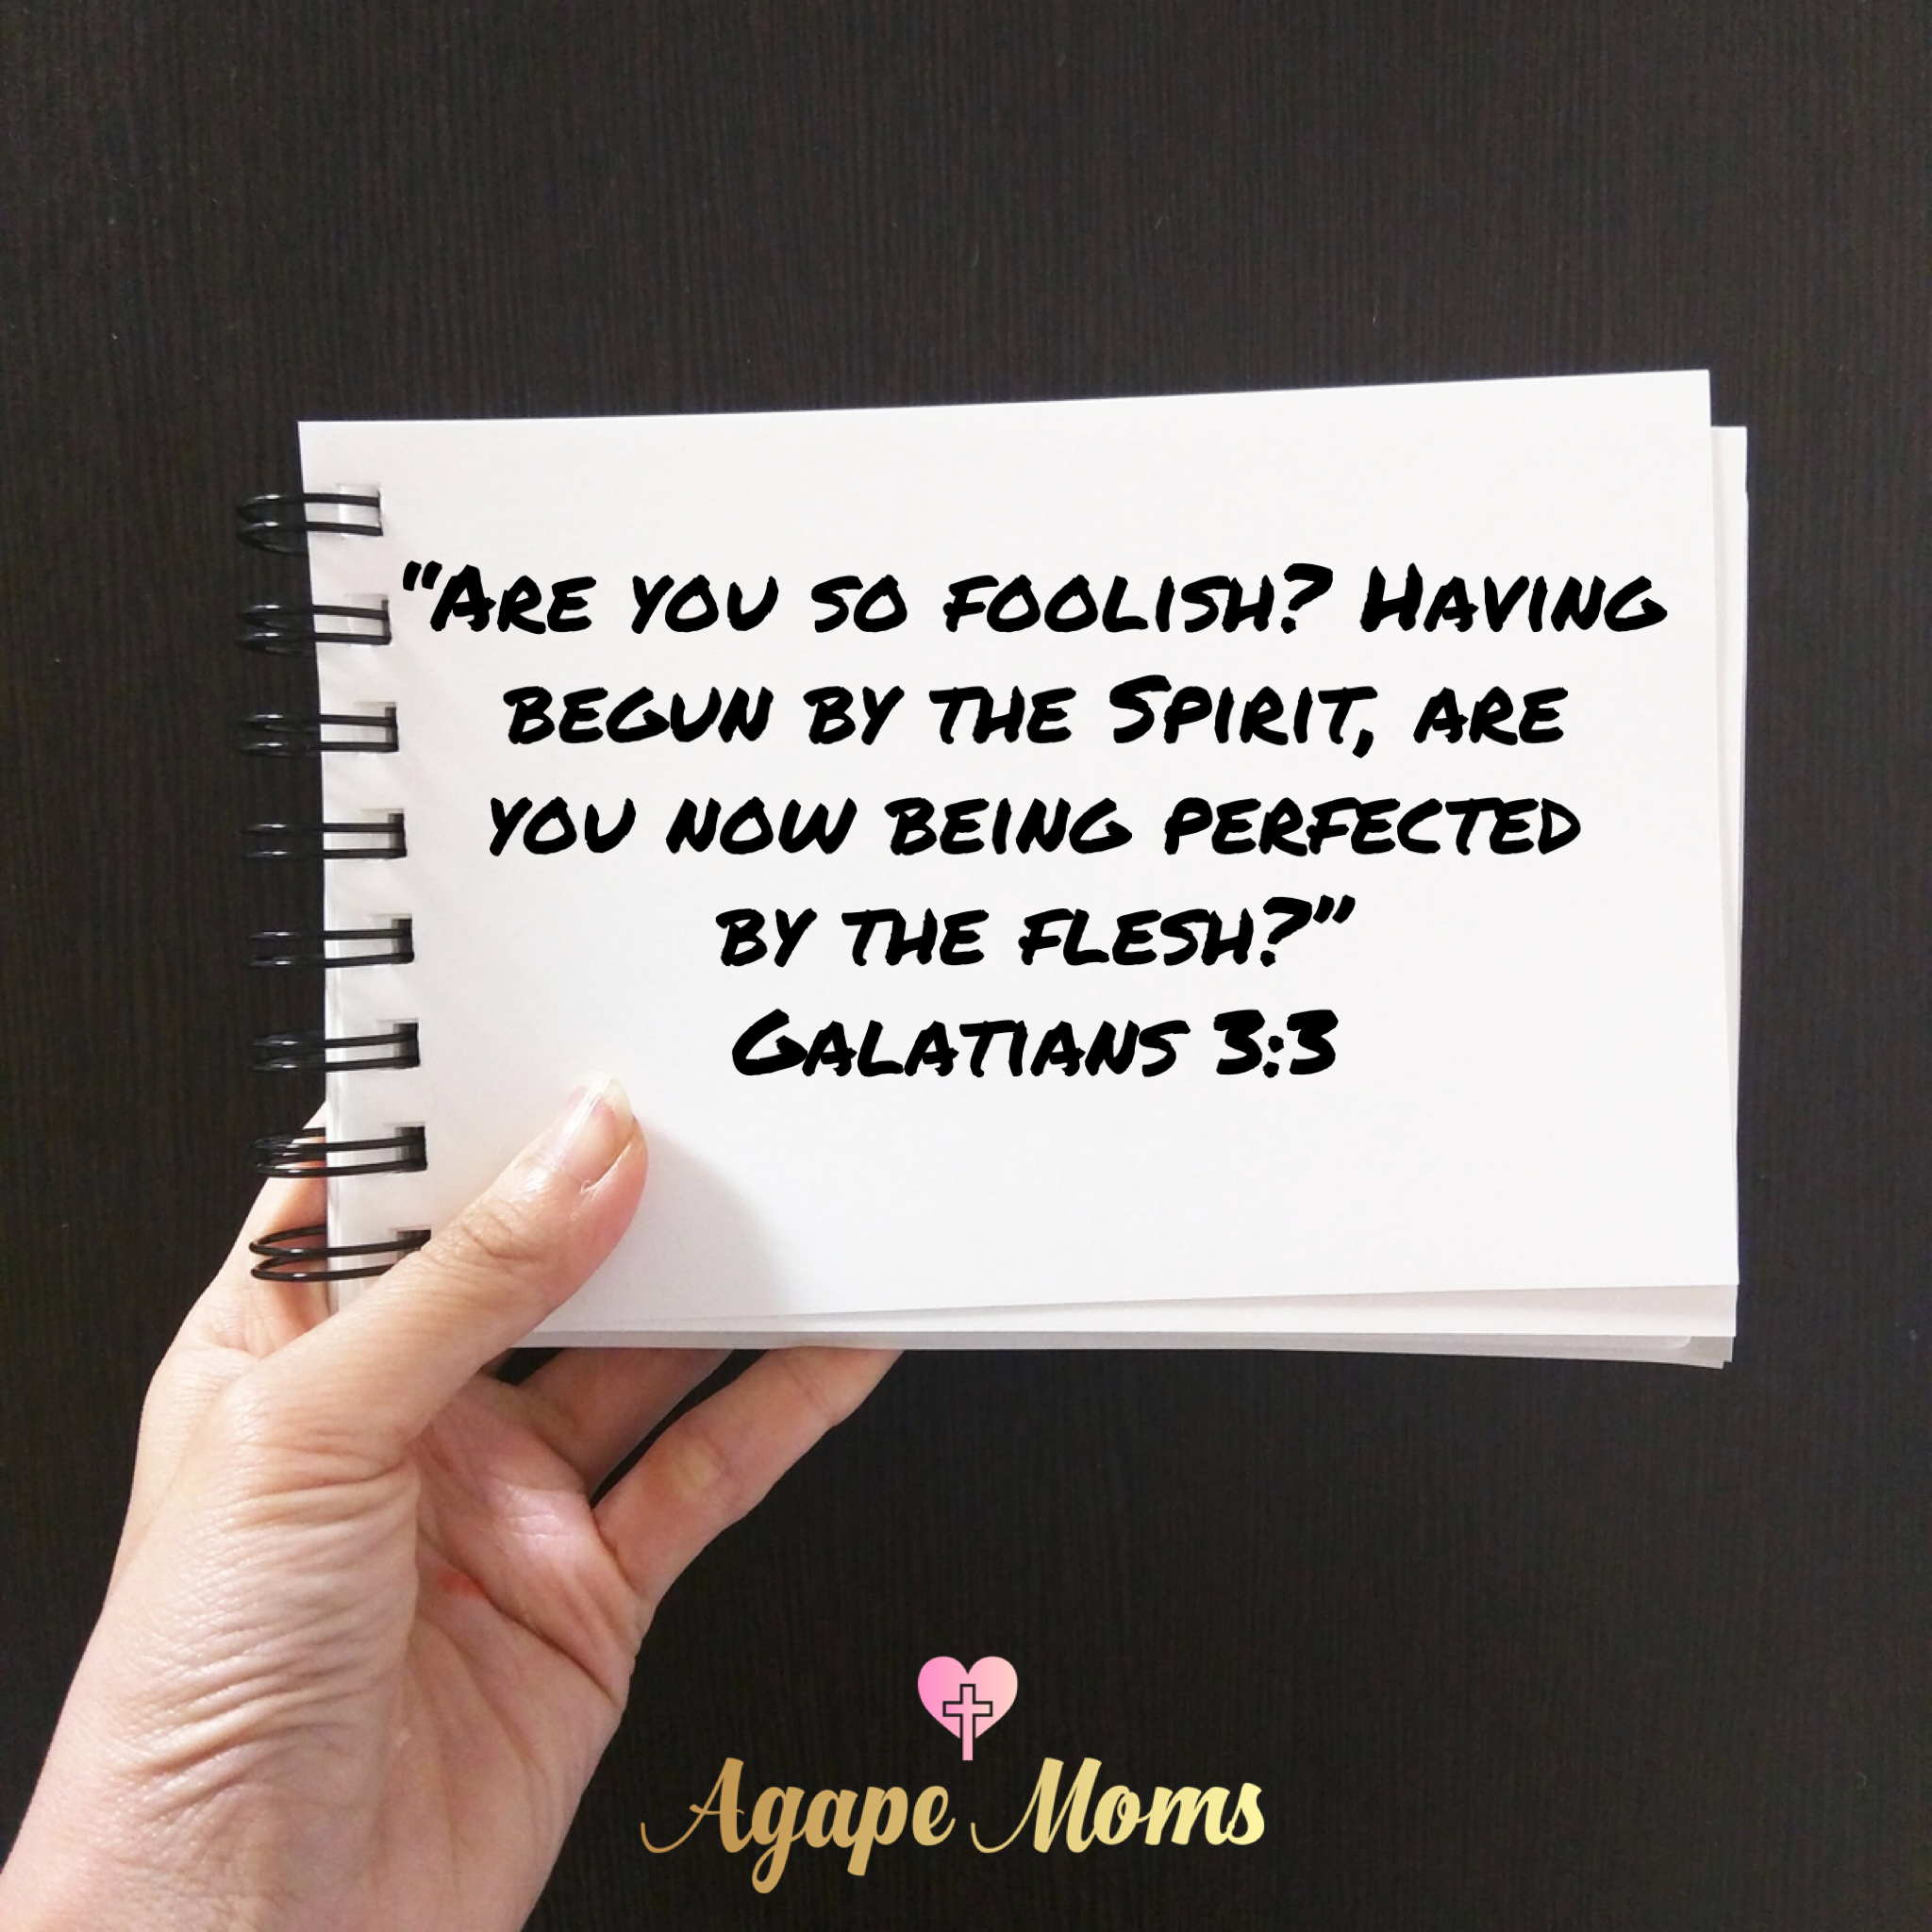 “Are you so foolish? Having
begun by the Spirit, are
you now being perfected
by the flesh?”
Galatians 3:3
Agape Moms